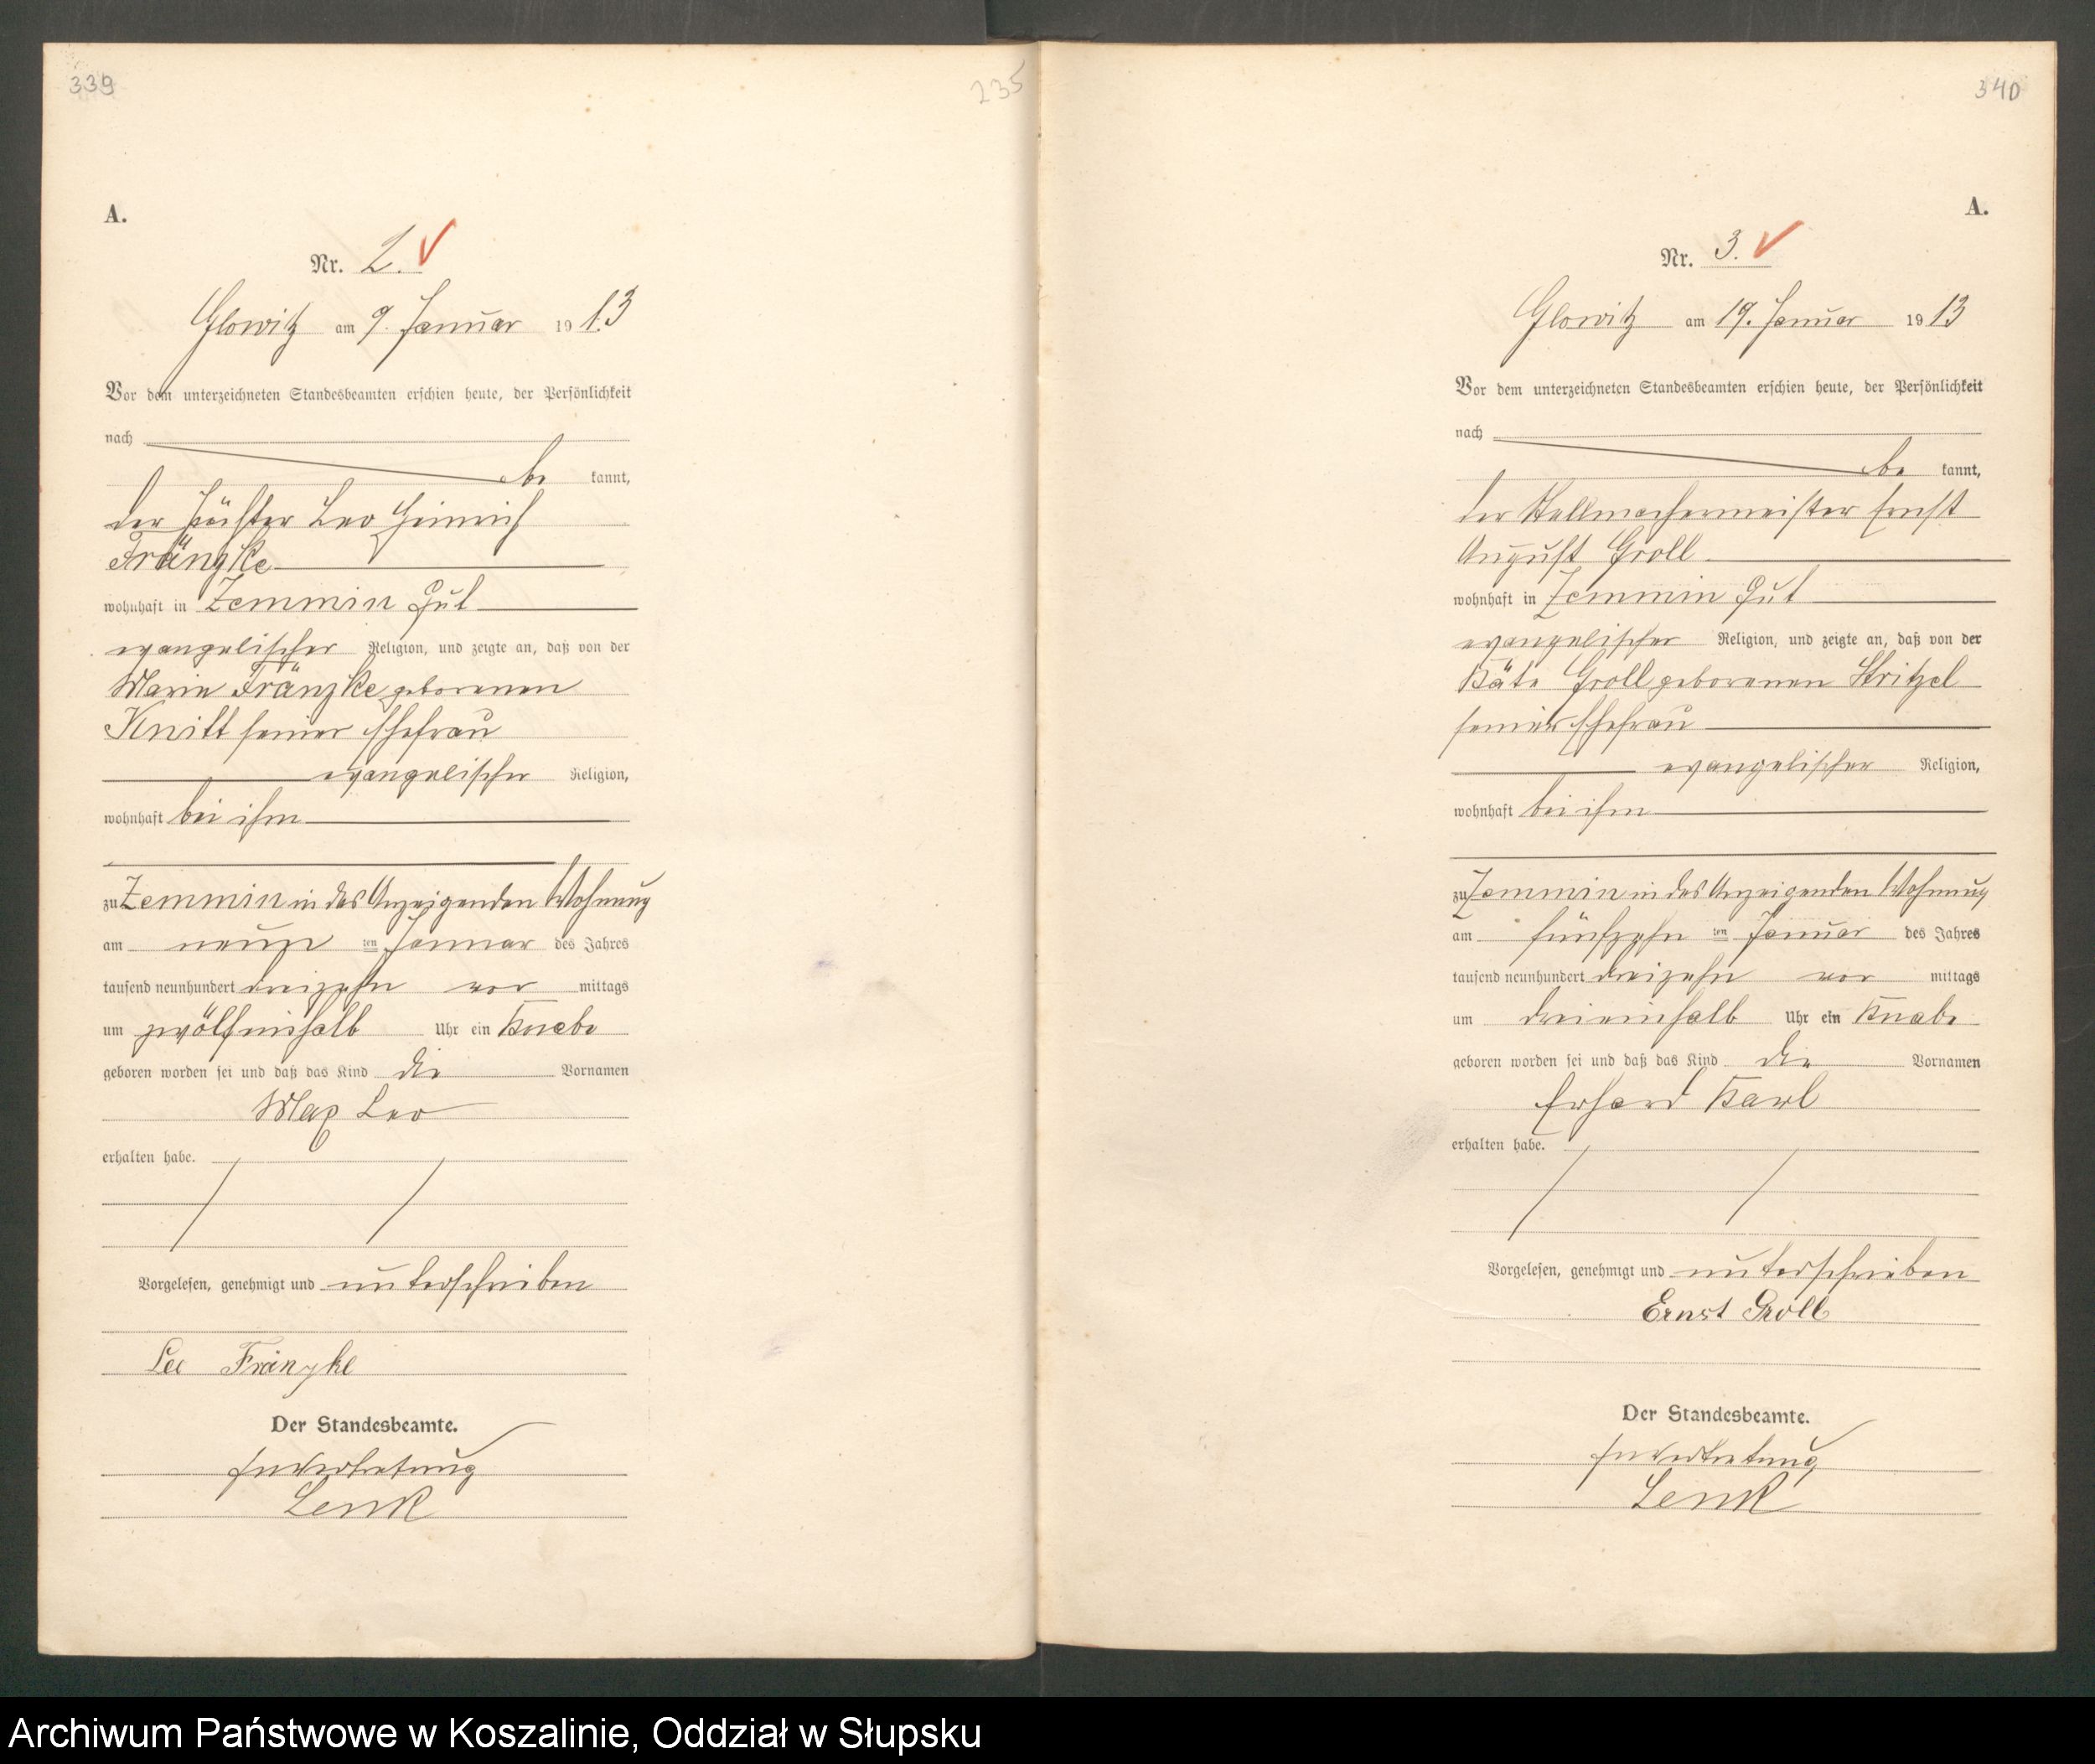 339
235
A.
Nr. 2.
Glowitz am 9. Januar 1913
Vor dem unterzeichneten Standesbeamten erschien heute, der Persönlichkeit
nach
be kannt,
der Leo Heinrich
Fränzke
wohnhaft in Zemmin Gut
evangelischer Religion, und zeigte an, daß von der
Marie Fränzke geborenen
Knitt seiner Ehefrau
evangelischer Religion,
wohnhaft bei ihm
zu Zemmin in des Anzeigenden Wohnung
am neun ten Januar des Jahres
tausend neunhundert dreizehn vor mittags
um zwölfeinhalb Uhr ein Knabe
geboren worden sei und daß das Kind die Vornamen
Max Leo
erhalten habe.
Vorgelesen, genehmigt und unterschrieben
Leo Fränzke
Der Standesbeamte.
In Vertretung
Lenk
340
A.
Nr. 3.
Glowitz am 19. Januar 1913
Vor dem unterzeichneten Standesbeamten erschien heute, der Persönlichkeit
nach
be kannt,
der Stellmachermeister Ernst
August Groll
wohnhaft in Zemmin Gut
evangelischer Religion, und zeigte an, daß von der
Käte Groll geborenen Stritzel
seiner Ehefrau
evangelischer Religion,
wohnhaft bei ihm
zu Zemmin in des Anzeigenden Wohnung
am fünfzehn ten Januar des Jahres
tausend neunhundert dreizehn vor mittags
um dreieinhalb Uhr ein Knabe
geboren worden sei und daß das Kind die Vornamen
Erhard Karl
erhalten habe.
Vorgelesen, genehmigt und unterschrieben
Ernst Groll
Der Standesbeamte.
In Vertretung
Lenk
Archiwum Państwowe w Koszalinie, Oddział w Słupsku